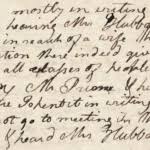 mostly in writing
hearing Mrs Hubba
in search of a wife Th
tion there indeed gi
all classes of people
M Prione I he
I spent it in writing
not go to meeting in th
I heard Mrs Hubba